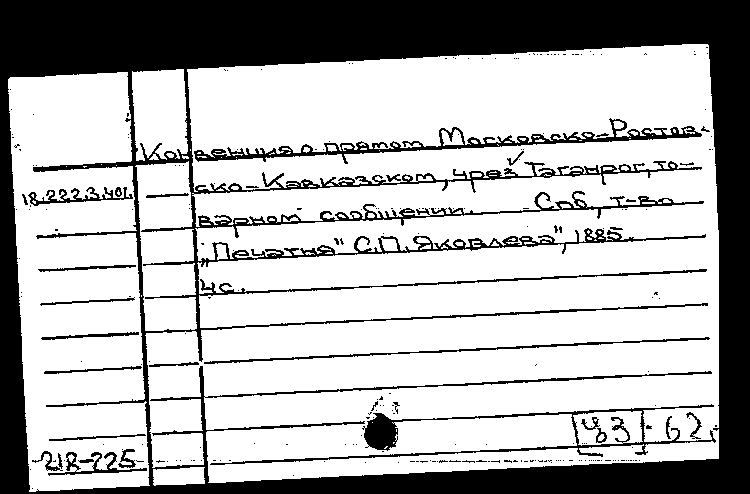 Конвенция о прямом Московско-Ростов-
18.222.3.401. ско-Кавказском, чрез Таганрог, то-
варном сообщении. Спб., т-во
„Печатня" С.П. Яковлева", 1885.
4с.
[ЦЗ]-62г
218-225